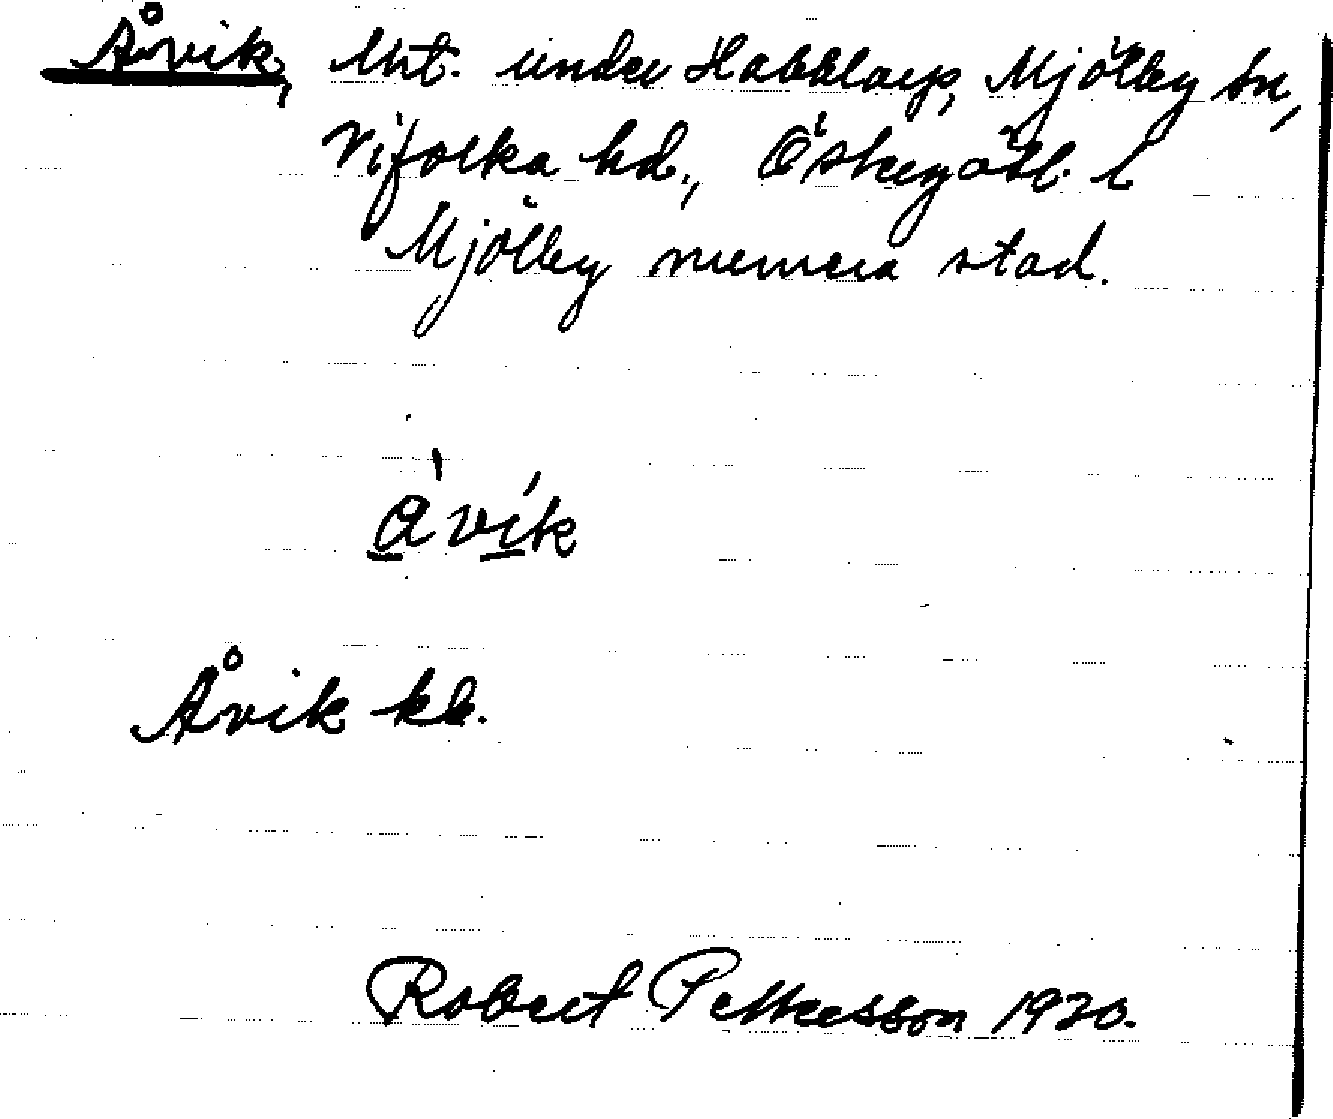 Åvik, lht. under Habblarp, Mjölby sn,
Vifolka hd., Östergötl. i
Mjölby numera stad.
àvík
Åvik kb.
Robert Pettersson 1920.